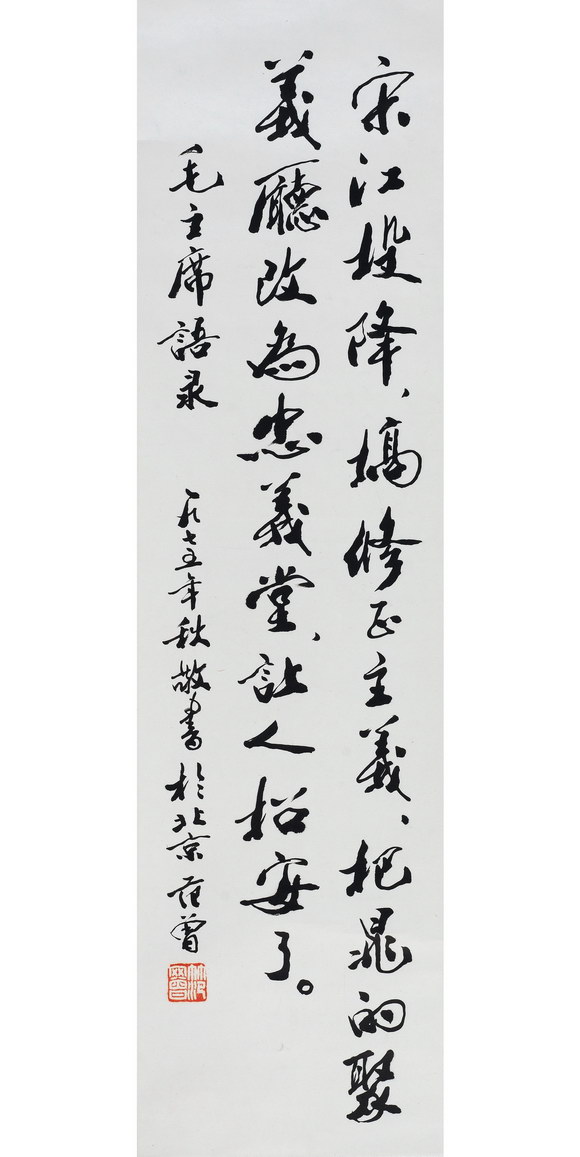 宋江投降、搞修正主義、把晁的聚
義廳改為忠義堂、让人招安了。
毛主席語录 一九七五年秋敬書於北京范曾
范曾